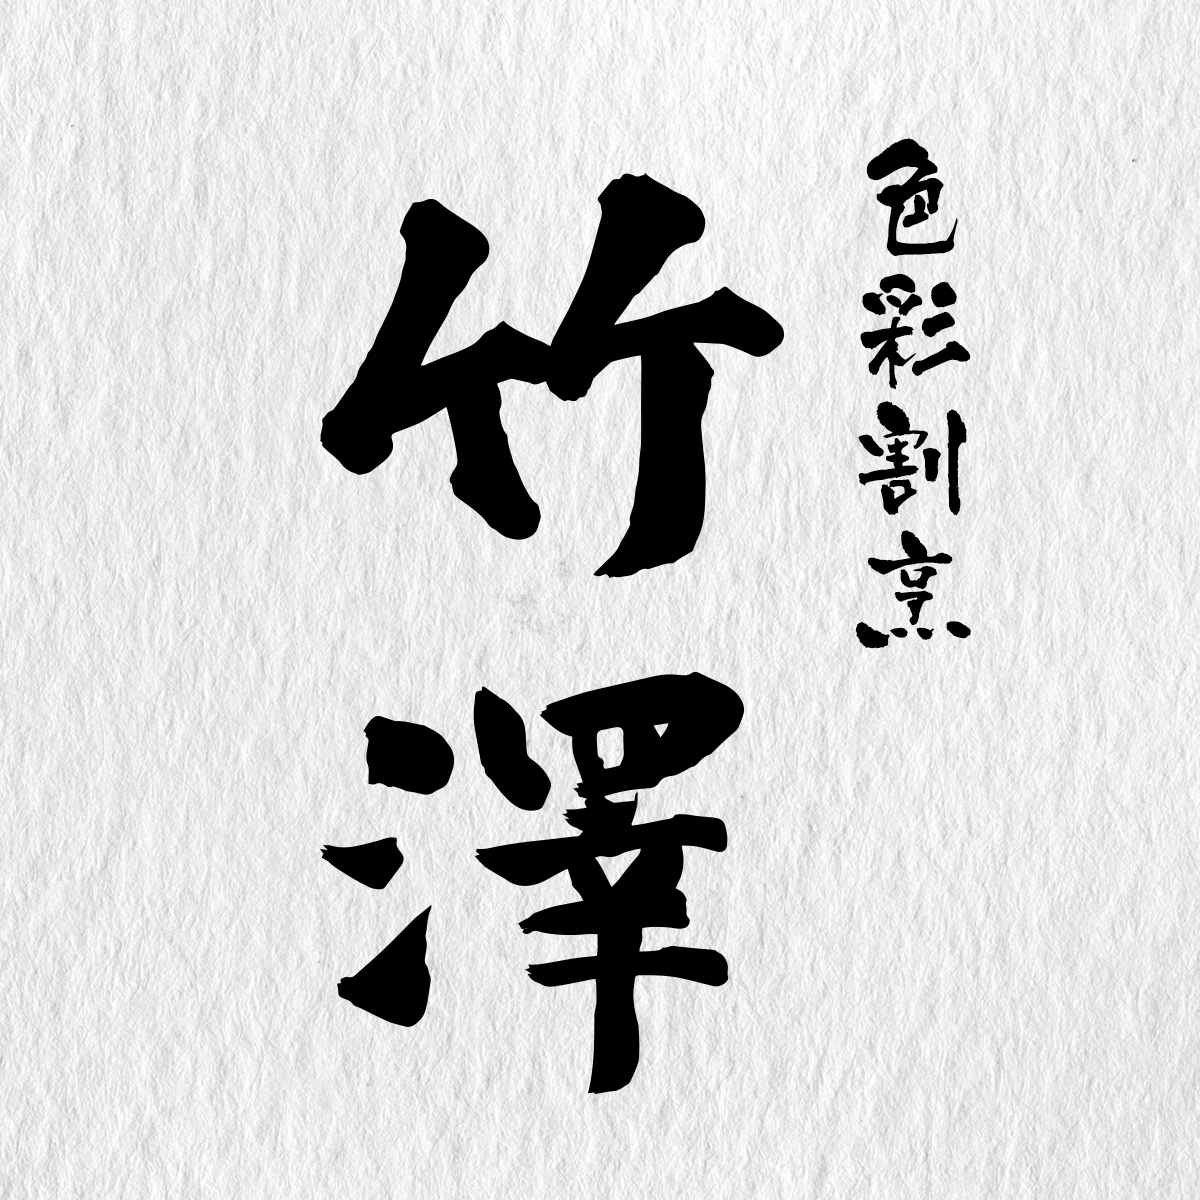 色彩割烹
竹澤